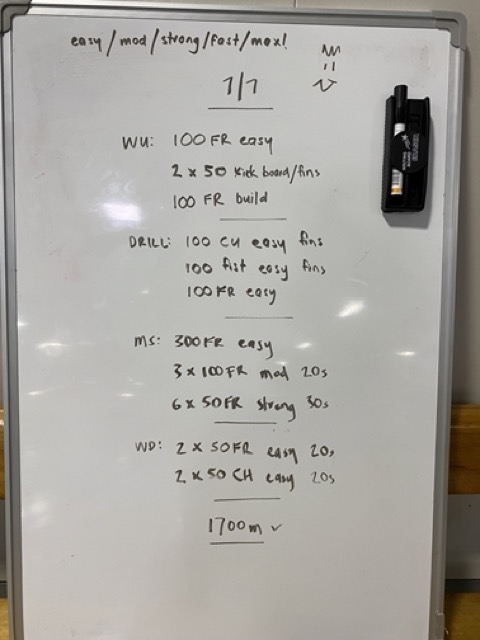 easy / mod / strong / fast / max!
7/7
WU: 100 FR easy
2 x 50 Kick board/fins
100 FR build
DRILL: 100 CU easy fins
100 fist easy fins
100 FR easy
MS: 300 FR easy
3 x 100 FR mod 20s
6 x 50 FR strong 30s
WD: 2 x 50 FR easy 20s
2 x 50 CH easy 20s
1700m ✓